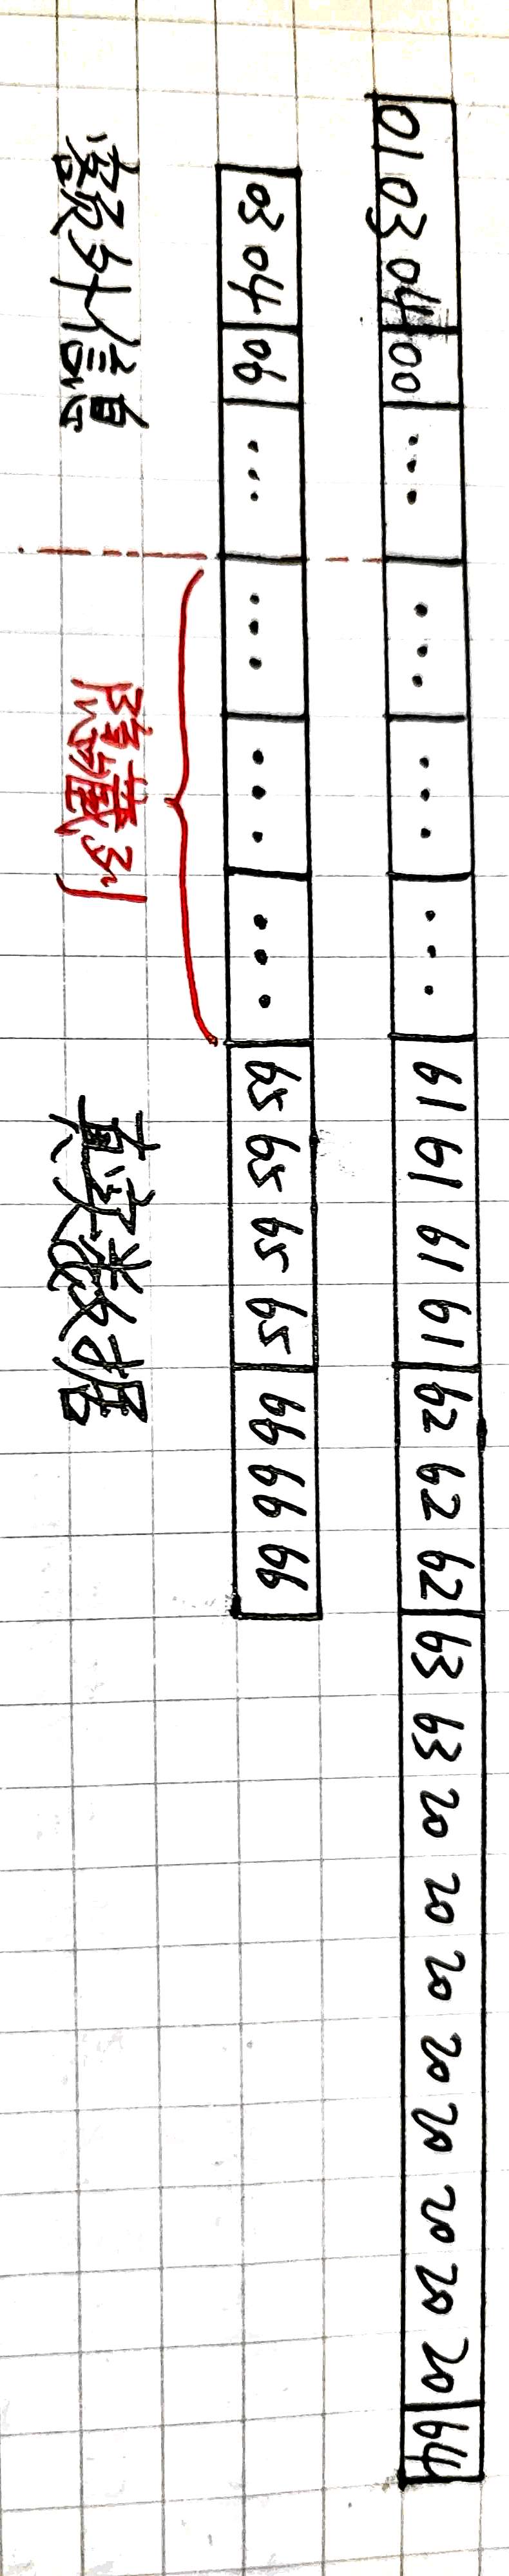 01 03 04 00 ... ... ... ... 61 61 61 61 62 62 62 63 63 20 20 20 20 20 20 20 20 64
03 04 06 ... ... ... ... 65 65 65 65 66 66 66
额外信息 隐藏列 真实数据